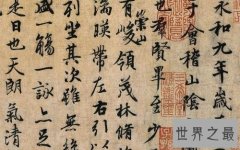 永和九年歲
于會稽山陰
賢畢至少
崇山
有峻領茂林脩
湍暎帶左右引以
列坐其次雖無
盛一觴一詠
是日也天朗氣清
世界之最